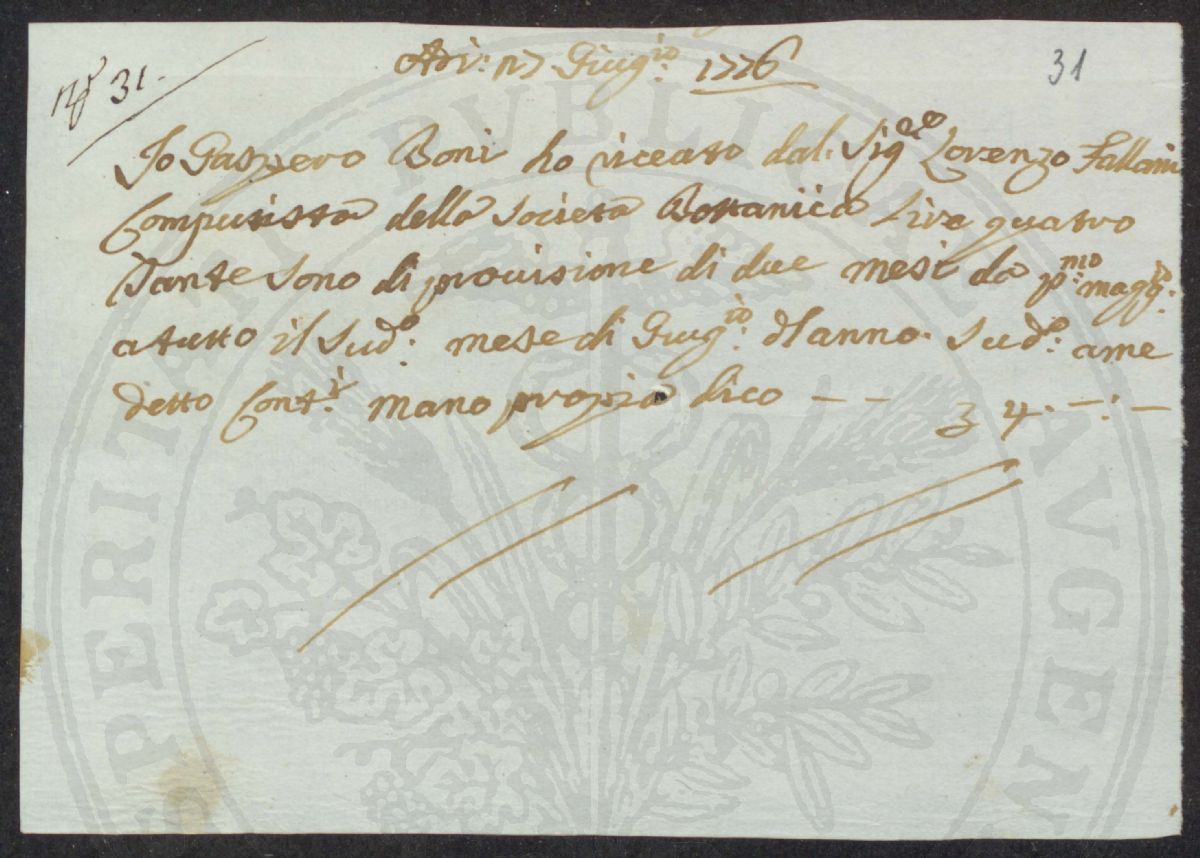 Adi: 17 Giug:io 1776
31
No 31.
Io Gaspero Boni ho riceuto dal Sig:re Lorenzo Fallani
Computista della Società Bottanica Lire quatro
Tante sono di provisione di due mesi da p:mo magg:io
a tutto il Sud:o mese di Giug:io dl anno Sud:o a me
detto Cont:i mano propia dico -- 4.-:-
PERITATI PUBLICAE AUGEN